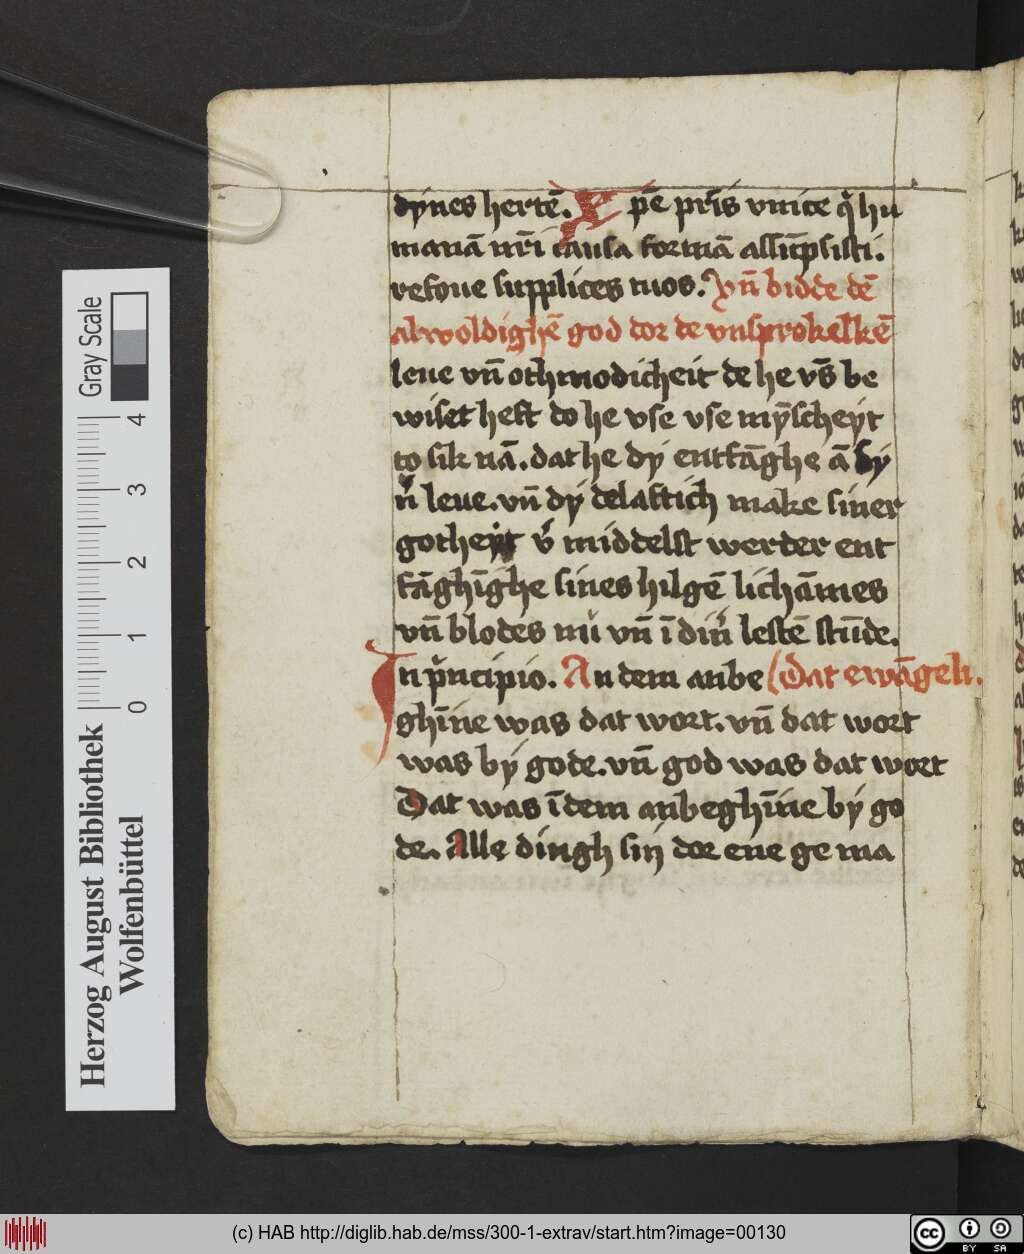 dynes hertē. Xpē pr̄is vnice q̇ hu
manā nr̄i causa formā assūpsisti.
refoue supplices tuos. Vn̄ bidde dē
alwoldighē god dor de vnsprokelkē
leue vn̄ othmodicheit de he vs̄ be
wiset heft do he vse vse mȳscheyt
to sik nā. dat he dy entfāghe ā sy
n̄ leue. vn̄ dy delaftich make siner
gotheyt v̄ middelst werder ent
fāghīghe sines hilgē lichāmes
vn̄ blodes nu vn̄ ī din̄ lestē stūde.
In pͥncipio. An dem anbe (Dat ewāgeli.
ghīne was dat wort. vn̄ dat wort
was by gode. vn̄ god was dat wort
Dat was īdem anbeghīne by go
de. Alle dingh sin dor ene ge ma
Gray Scale
4 3 2 1 0
Herzog August Bibliothek
Wolfenbüttel
(c) HAB http://diglib.hab.de/mss/300-1-extrav/start.htm?image=00130
cc BY SA